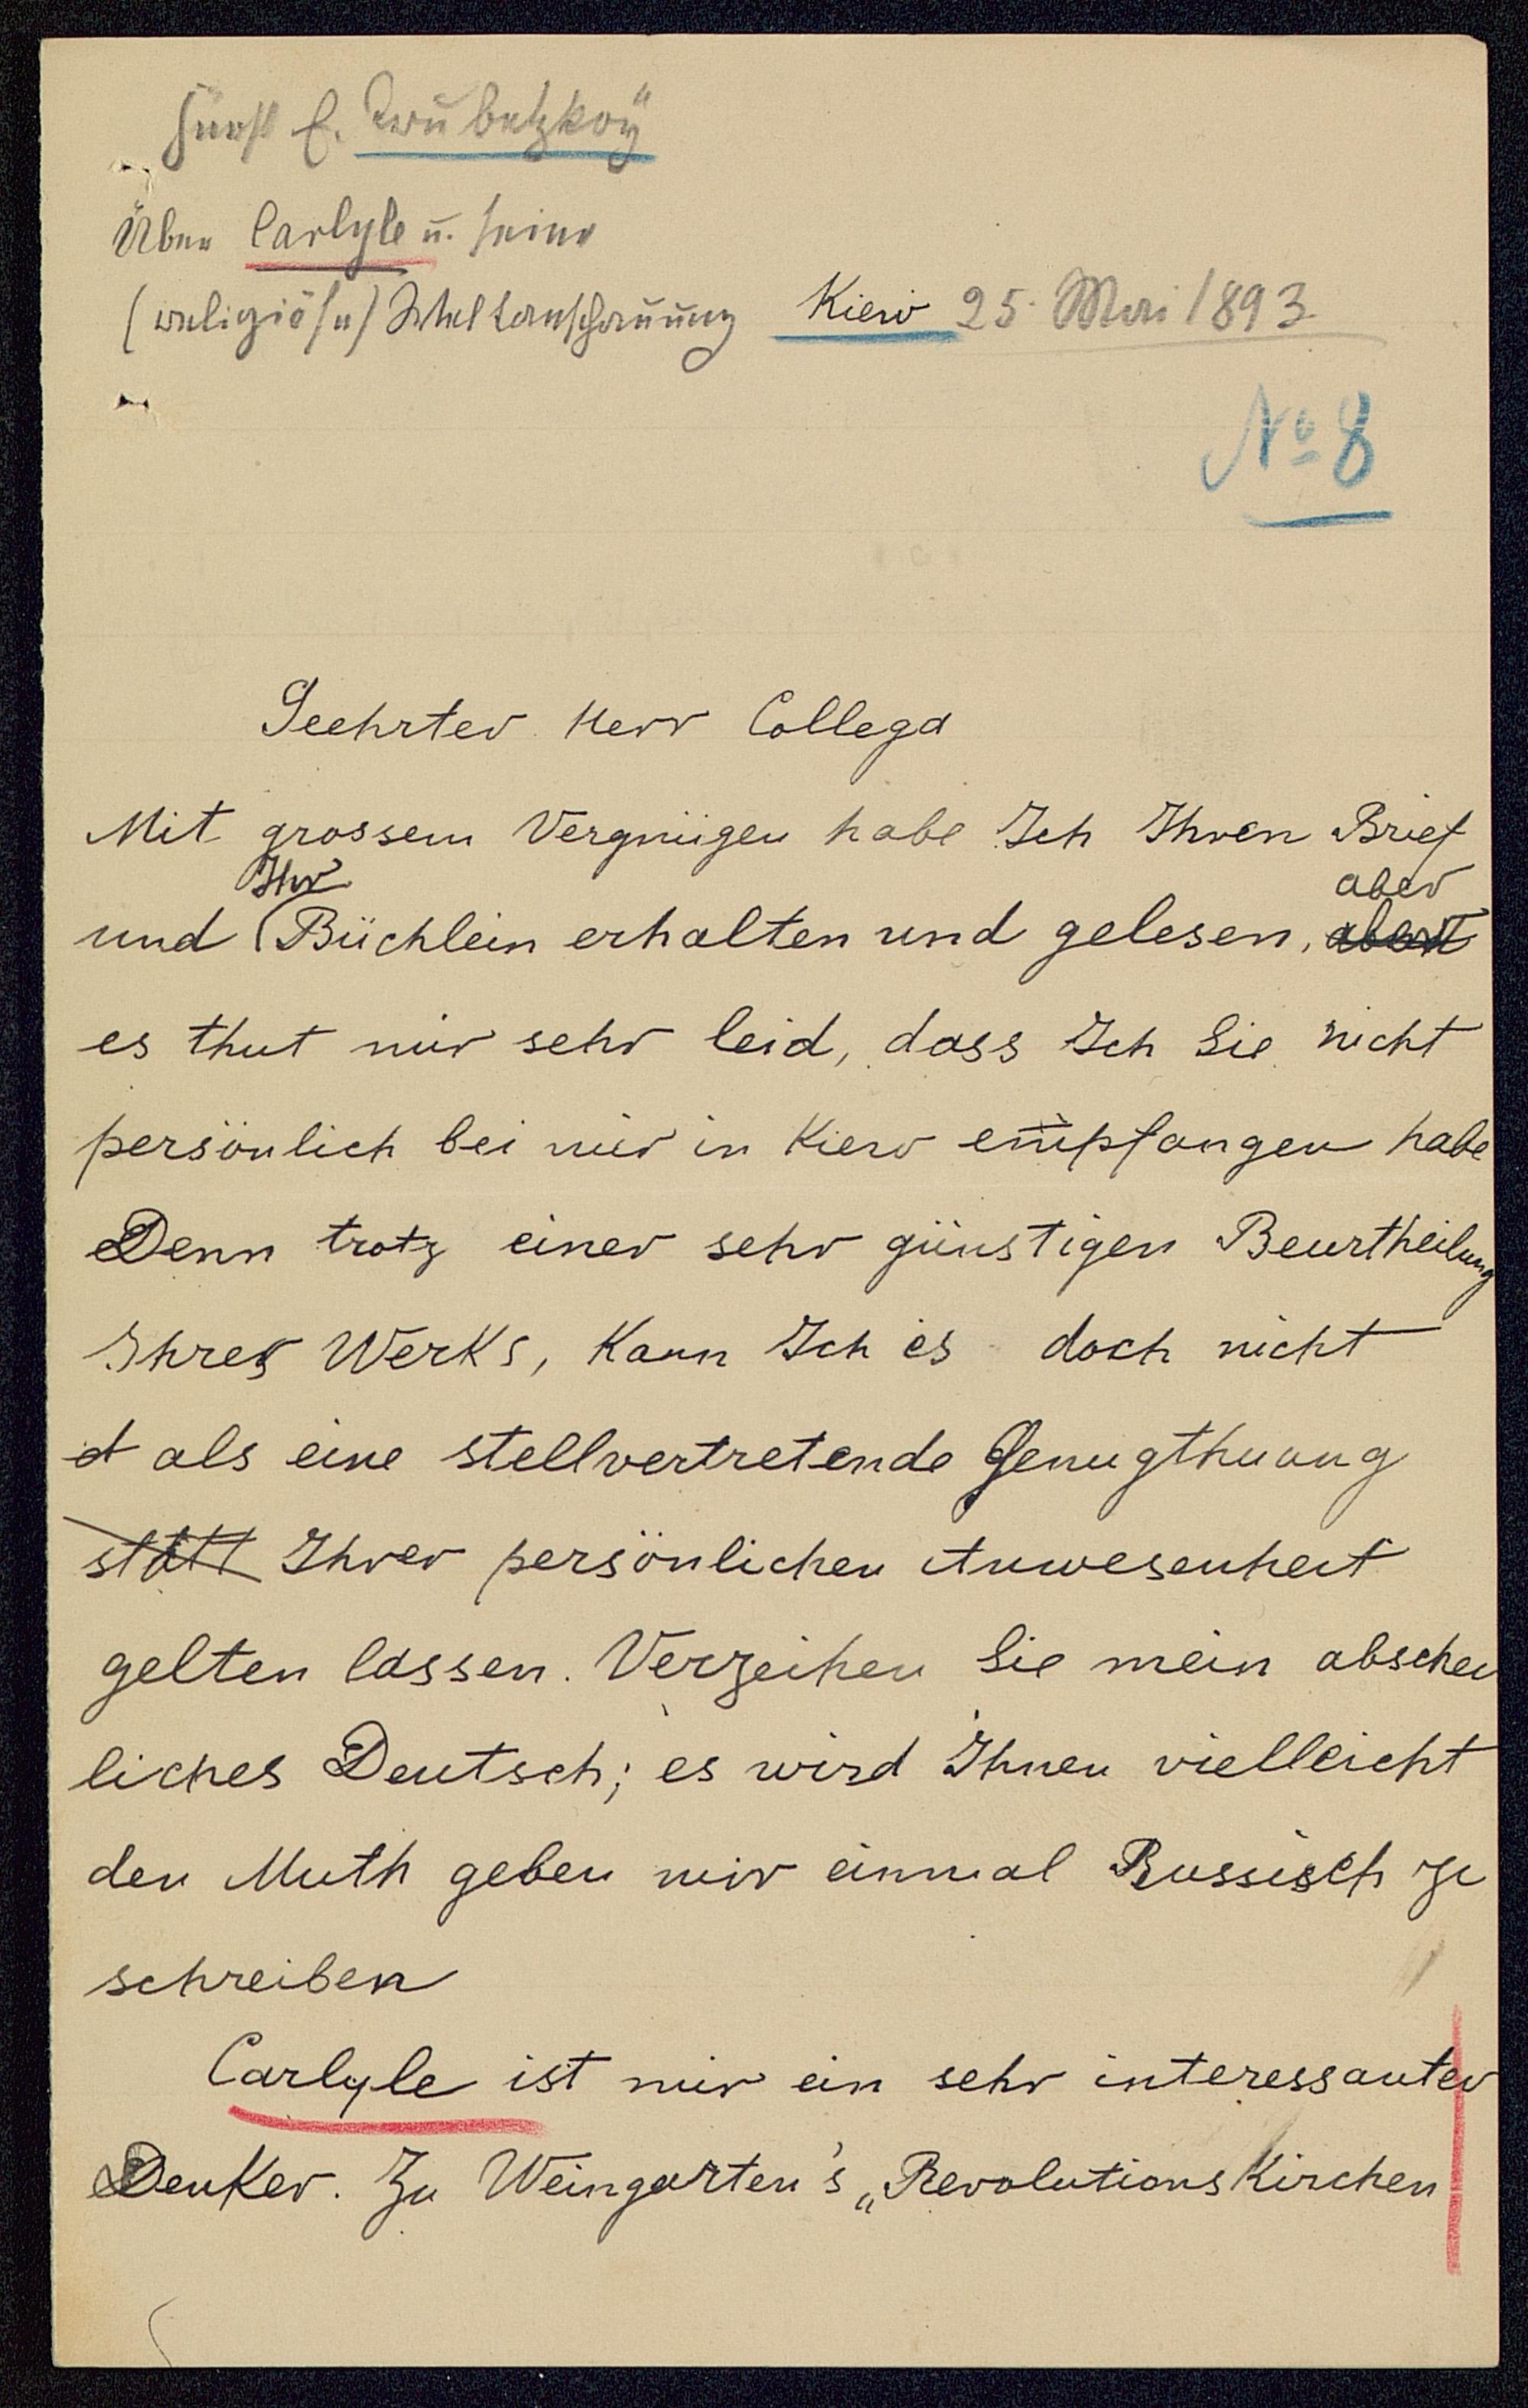 Fürst E. Trubetzkoy
Über Carlyle u. seine
(religiöse) Weltanschauung Kiew 25. Mai 1893
No 8
Geehrter Herr Collega
Mit grossem Vergnügen habe Ich Ihren Brief
und Ihr Büchlein erhalten und gelesen, aber
es thut mir sehr leid, dass Ich Sie nicht
persönlich bei mir in Kiew empfangen habe
Denn trotz einer sehr günstigen Beurtheilung
Ihres Werks, Kann Ich es doch nicht
als eine stellvertretende Genugthuung
statt Ihrer persönlichen Anwesenheit
gelten lassen. Verzeihen Sie mein abscheu
liches Deutsch; es wird Ihnen vielleicht
den Muth geben mir einmal Russisch zu
schreiben
Carlyle ist mir ein sehr interessanter
Denker. Zu Weingarten's „Revolutions Kirchen